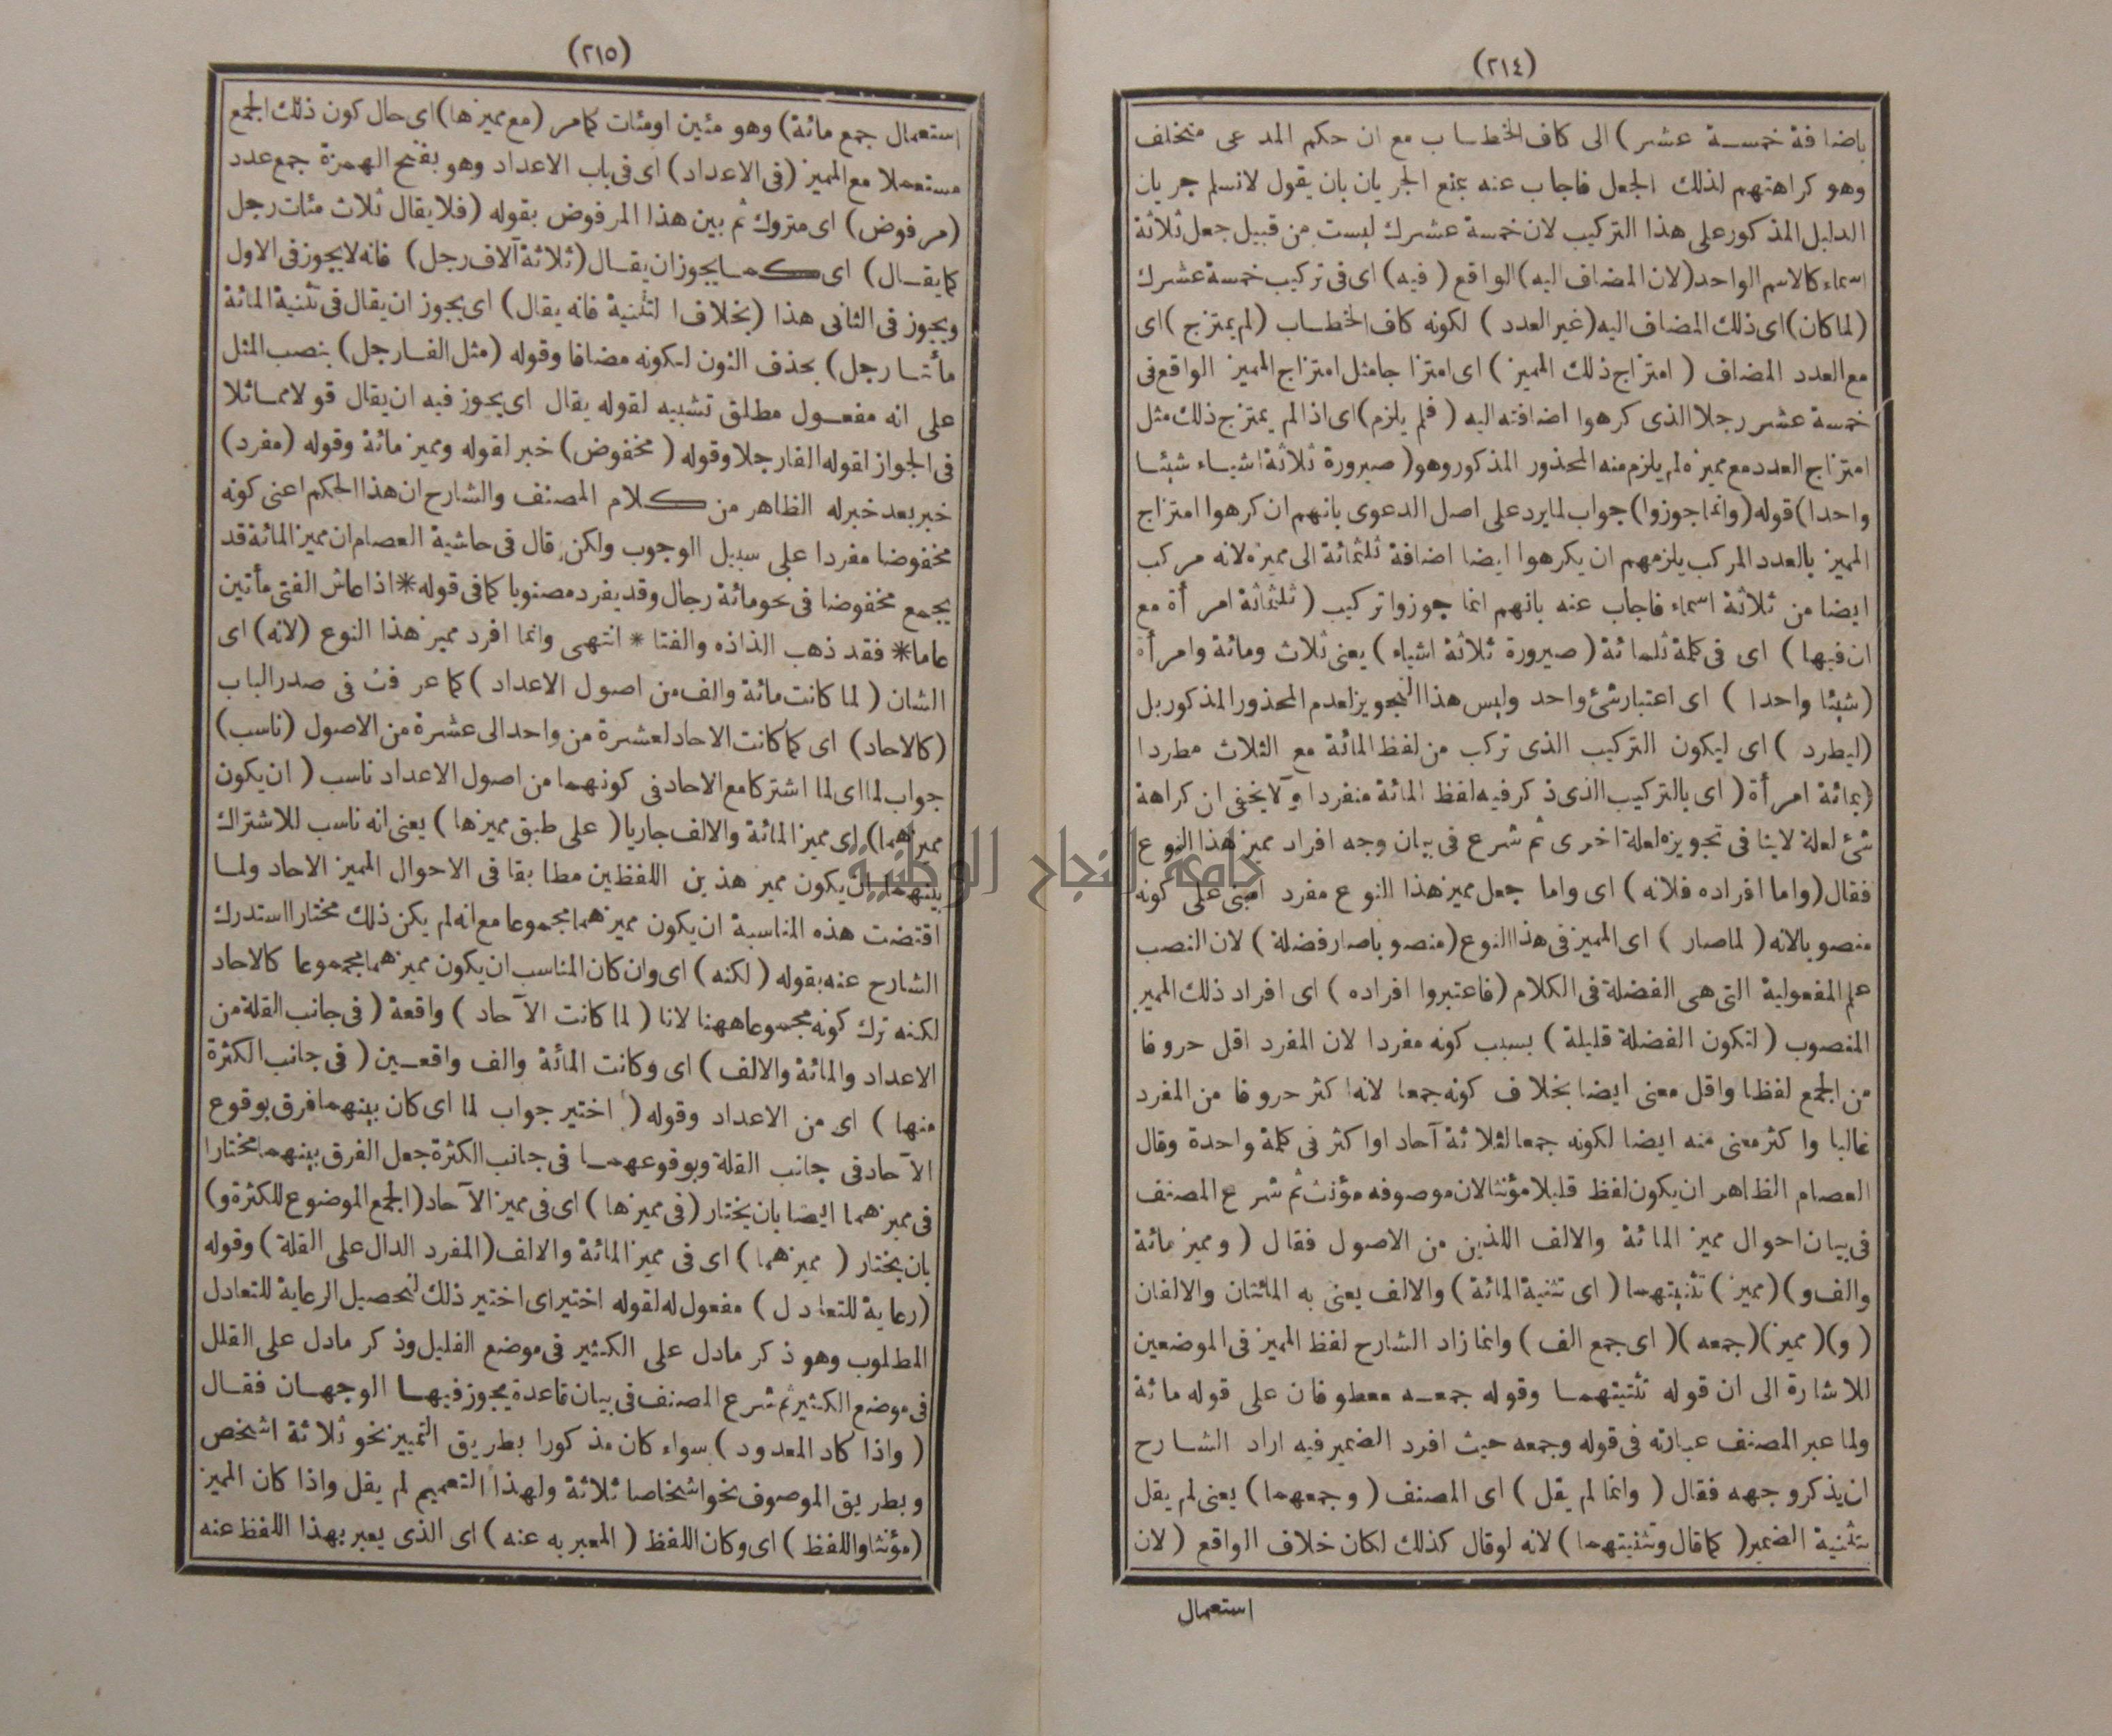 (٢١٤)
باضافة خمسة عشر ) الى كاف الخطاب مع ان حكم المدعى متخلف
وهو كراهتهم لذلك الجعل فاجاب عنه بمنع الجريان بان يقول لانسلم جريان
الدليل المذكور على هذا التركيب لان خمسة عشرك ليست من قبيل جعل ثلاثة
اسماء كالاسم الواحد (لان المضاف اليه) الواقع ( فيه) اى فى تركيب خمسة عشرك
(لما كان) اى ذلك المضاف اليه (غير العدد ) لكونه كاف الخطاب (لم يمتزج ) اى
مع العدد المضاف ( امتزاج ذلك المميز ) اى امتزاجا مثل امتزاج المميز الواقع فى
خمسة عشر رجلا الذى كرهوا اضافته اليه ( فلم يلزم) اى اذا لم يمتزج ذلك مثل
امتزاج العدد مع مميزه لم يلزم منه المحذور المذكور وهو ( صيرورة ثلاثة اشياء شيئا
واحدا) قوله (وانما جوزوا) جواب لما يرد على اصل الدعوى بانهم ان كرهوا امتزاج
المميز بالعدد المركب يلزمهم ان يكرهوا ايضا اضافة ثلثمائة الى مميزه لانه مركب
ايضا من ثلاثة اسماء فاجاب عنه بانهم انما جوزوا تركيب ( ثلثمائة امرأة مع
ان فيها ) اى فى كلمة ثلثمائة ( صيرورة ثلاثة اشياء ) يعنى ثلاث ومائة وامرأة
(شيئا واحدا ) اى اعتبار شئ واحد وليس هذا التجويز لعدم المحذور المذكور بل
(ليطرد ) اى ليكون التركيب الذى تركب من لفظ المائة مع الثلاث مطردا
(بمائة امرأة ( اى بالتركيب الذى ذكر فيه لفظ المائة منفردا ولا يخفى ان كراهة
شئ لعلة لاينافى تجويزه لعلة اخرى ثم شرع فى بيان وجه افراد مميز هذا النوع
فقال (واما افراده فلانه ) اى واما جعل مميز هذا النوع مفرد امبنى على كونه
منصوبا لانه ( لماصار ) اى المميز فى هذا النوع (منصوبا صار فضلة ) لان النصب
علم المفعولية التى هى الفضلة فى الكلام (فاعتبروا افراده ) اى افراد ذلك المميز
المنصوب (لتكون الفضلة قليلة ) بسبب كونه مفردا لان المفرد اقل حروفا
من الجمع لفظا واقل معنى ايضا بخلاف كونه جمعا لانه اكثر حروفا من المفرد
غالبا واكثر معنى منه ايضا لكونه جمعا لثلاثة آحاد او اكثر فى كلمة واحدة وقال
العصام الظاهر ان يكون لفظ قليلا مؤنثا لان موصوفه مؤنث ثم شرع المصنف
فى بيان احوال مميز المائة والالف اللذين من الاصول فقال ( ومميز مائة
والف و) (مميز ) تثنيتهما ( اى تثنية المائة ) والالف يعنى به المائتان والالفان
( و) ( مميز) (جمعه ) ( اى جمع الف ) وانما زاد الشارح لفظ المميز فى الموضعين
للاشارة الى ان قوله تثنيتهما وقوله جمعه معطوفان على قوله مائة
ولما عبر المصنف عبارته فى قوله وجمعه حيث افرد الضمير فيه اراد الشارح
ان يذكر وجهه فقال ( وانما لم يقل ) اى المصنف ( وجمعهما ) يعنى لم يقل
بتثنية الضمير ( كما قال وتثنيتهما ) لانه لو قال كذلك لكان خلاف الواقع ( لان
استعمال
(٢١٥)
استعمال جمع مائة) وهو مئين او مئات كما مر (مع مميزها) اى حال كون ذلك الجمع
مستعملا مع المميز (فى الاعداد ) اى فى باب الاعداد وهو بفتح الهمزة جمع عدد
(مرفوض) اى متروك ثم بين هذا المرفوض بقوله (فلا يقال ثلاث مئات رجل
كما يقال ) اى كما يجوز ان يقال (ثلاثة آلاف رجل ) فانه لايجوز فى الاول
ويجوز فى الثانى هذا (بخلاف ا لتثنية فانه يقال) اى يجوز ان يقال فى تثنية المائة
مأتا رجل) بحذف النون لكونه مضافا وقوله (مثل الفا رجل) بنصب المثل
على انه مفعول مطلق تشبيه لقوله يقال اى يجوز فيه ان يقال قولا مماثلا
فى الجواز لقوله الفا رجلا وقوله ( مخفوض) خبر لقوله ومميز مائة وقوله (مفرد)
خبر بعد خبر له الظاهر من كلام المصنف والشارح ان هذا الحكم اعنى كونه
مخفوضا مفردا على سبيل الوجوب ولكن قال فى حاشية العصام ان مميز المائة قد
يجمع مخفوضا فى نحو مائة رجال وقد يفرد منصوبا كما فى قوله * اذا عاش الفتى مأتين
عاما * فقد ذهب اللذاذه والفتا * انتهى وانما افرد مميز هذا النوع (لانه) اى
الشان ( لما كانت مائة والف من اصول الاعداد ) كما عرفت فى صدر الباب
(كالاحاد) اى كما كانت الاحاد لعشرة من واحد الى عشرة من الاصول (ناسب)
جواب لما اى لما اشتركا مع الاحاد فى كونهما من اصول الاعداد ناسب ( ان يكون
مميزهما) اى مميز المائة والالف جاريا ( على طبق مميزها ) يعنى انه ناسب للاشتراك
بينهما ان يكون مميز هذين اللفظين مطابقا فى الاحوال المميز الاحاد ولما
اقتضت هذه المناسبة ان يكون مميزهما مجموعا مع انه لم يكن ذلك مختارا استدرك
الشارح عنه بقوله ( لكنه ) اى وان كان المناسب ان يكون مميزهما مجموعا كالاحاد
لكنه ترك كونه مجموعا ههنا لانا ( لما كانت الآحاد ) واقعة ( فى جانب القلة من
الاعداد والمائة والالف ) اى وكانت المائة والف واقعين ( فى جانب الكثرة
منها ) اى من الاعداد وقوله ( اختير جواب لما اى كان بينهما فرق بوقوع
الآحاد فى جانب القلة وبوقوعهما فى جانب الكثرة جعل الفرق بينهما مختارا
فى مميزهما ايضا بان يختار (فى مميزها ) اى فى مميز الآحاد (الجمع الموضوع للكثرة و)
بان يختار ( مميزهما ) اى فى مميز المائة والالف (المفرد الدال على القلة ) وقوله
(رعاية للتعادل ) مفعول له لقوله اختير اى اختير ذلك لتحصيل الرعاية للتعادل
المطلوب وهو ذكر مادل على الكثير فى موضع القليل وذكر مادل على القلل
فى موضع الكثير ثم شرع المصنف فى بيان قاعدة يجوز فيها الوجهان فقال
( واذا كاد المعدود ) سواء كان مذكورا بطريق التمييز نحو ثلاثة اشخص
وبطريق الموصوف نحو اشخاصا ثلاثة ولهذا التعميم لم يقل واذا كان المميز
(مؤنثا واللفظ ) اى وكان اللفظ ( المعبر به عنه ) اى الذى يعبر بهذا اللفظ عنه
جامعة النجاح الوطنية